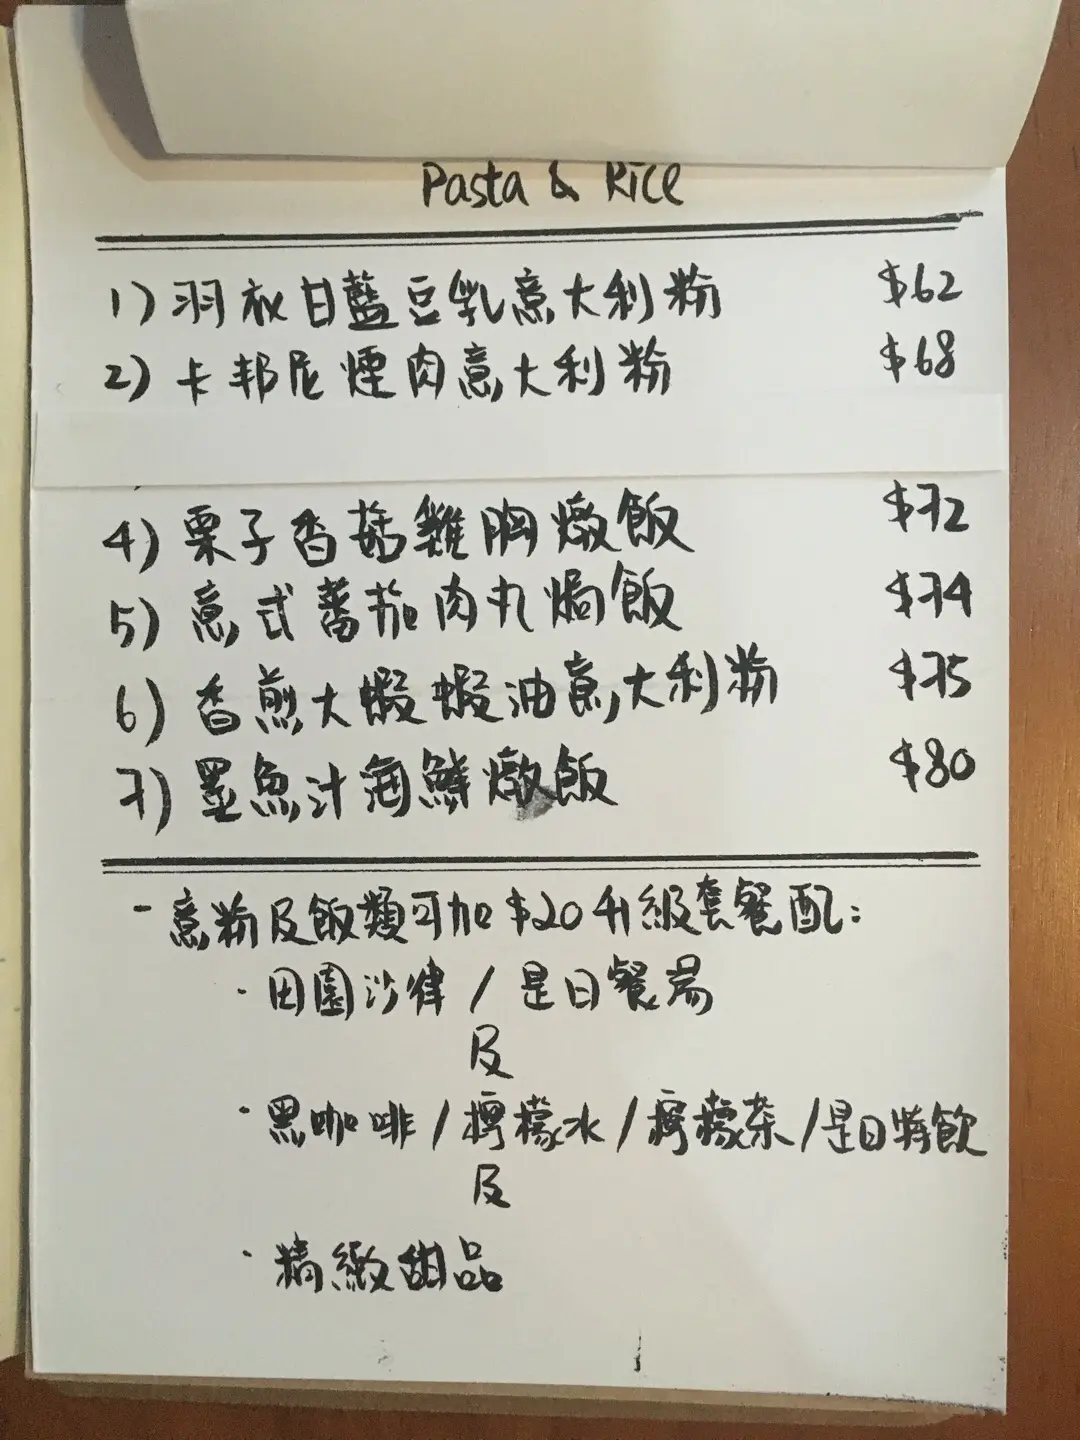 Pasta & Rice
1) 羽衣甘藍豆乳意大利粉 $62
2) 卡邦尼煙肉意大利粉 $68
4) 栗子香菇雞胸燉飯 $72
5) 意式蕃茄肉丸焗飯 $74
6) 香煎大蝦蝦油意大利粉 $75
7) 墨魚汁海鮮燉飯 $80
- 意粉及飯類可加$20升級套餐配:
· 田園沙律 / 是日餐湯
及
· 黑咖啡 / 檸檬水 / 檸檬茶 / 是日特飲
及
· 精緻甜品